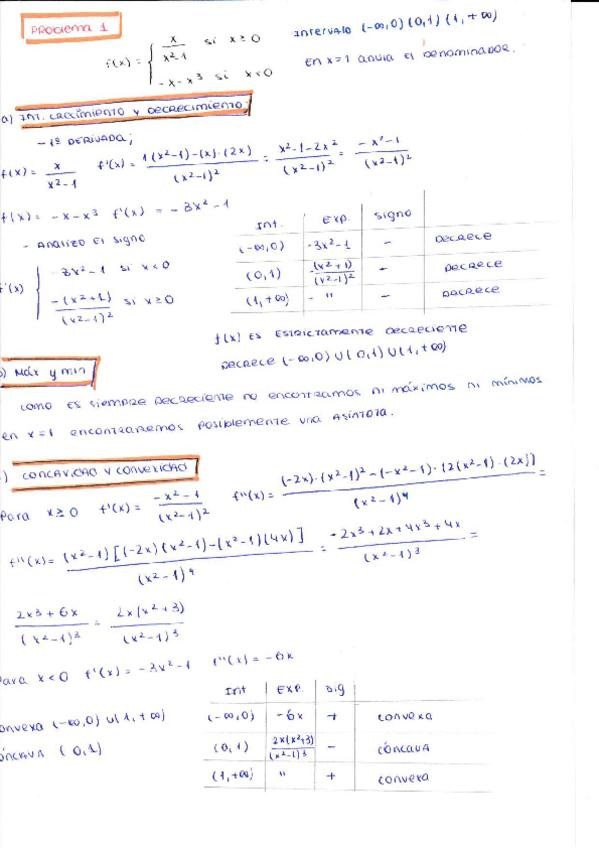 PROBLEMA 1
f(x) = { x/(x²-1) si x ≥ 0
-x-x³ si x < 0
INTERVALO (-∞,0) (0,1) (1,+∞)
en x=1 anula el denominador.
a) INT. CRECIMIENTO Y DECRECIMIENTO;
- 1ª DERIVADA;
f(x) = x/(x²-1) f'(x) = (1(x²-1)-(x)·(2x))/(x²-1)² = (x²-1-2x²)/(x²-1)² = (-x²-1)/(x²-1)²
f(x) = -x-x³ f'(x) = -3x²-1
- ANALIZO EL SIGNO
f'(x) { -3x²-1 si x<0
-(x²+1)/(x²-1)² si x≥0
Int. Exp. signo
(-∞,0) -3x²-1 - DECRECE
(0,1) -(x²+1)/(x²-1)² - DECRECE
(1,+∞) - " - DECRECE
f(x) ES ESTRICTAMENTE DECRECIENTE
DECRECE (-∞,0) U (0,1) U (1,+∞)
b) Máx y min
COMO ES SIEMPRE DECRECIENTE NO ENCONTRAMOS NI MÁXIMOS NI MÍNIMOS
en x=1 ENCONTRAREMOS POSIBLEMENTE UNA ASÍNTOTA.
) CONCAVIDAD Y CONVEXIDAD
Para x≥0 f'(x) = (-x²-1)/(x²-1)² f''(x) = ((-2x)·(x²-1)²-(-x²-1)·[2(x²-1)·(2x)])/(x²-1)⁴ =
f''(x) = ((x²-1)[(-2x)(x²-1)-(x²-1)(4x)])/(x²-1)⁴ = (-2x³+2x+4x³+4x)/(x²-1)³ =
(2x³+6x)/(x²-1)³ = (2x(x²+3))/(x²-1)³
Para x<0 f'(x) = -3x²-1 f''(x) = -6x
Int Exp. sig
(-∞,0) -6x + convexa
(0,1) 2x(x²+3)/(x²-1)³ - CÓNCAVA
(1,+∞) " + convexa
onvexa (-∞,0) U (1,+∞)
ÓNCAVA (0,1)